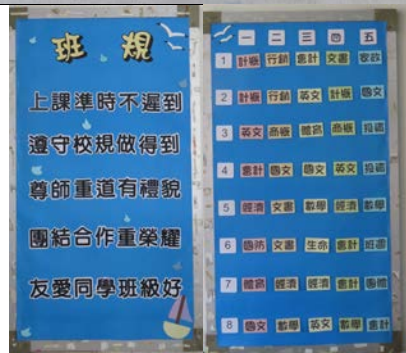 班規
上課準時不遲到
遵守校規做得到
尊師重道有禮貌
團結合作重榮耀
友愛同學班級好
一 二 三 四 五
1 計概 行銷 會計 文書 家政
2 計概 行銷 英文 計概 國文
3 英文 商概 體育 商概 投資
4 會計 國文 國文 英文 投資
5 經濟 文書 數學 經濟 數學
6 國防 文書 生命 會計 班週
7 體育 經濟 經濟 會計 團體
8 國文 數學 英文 數學 會計